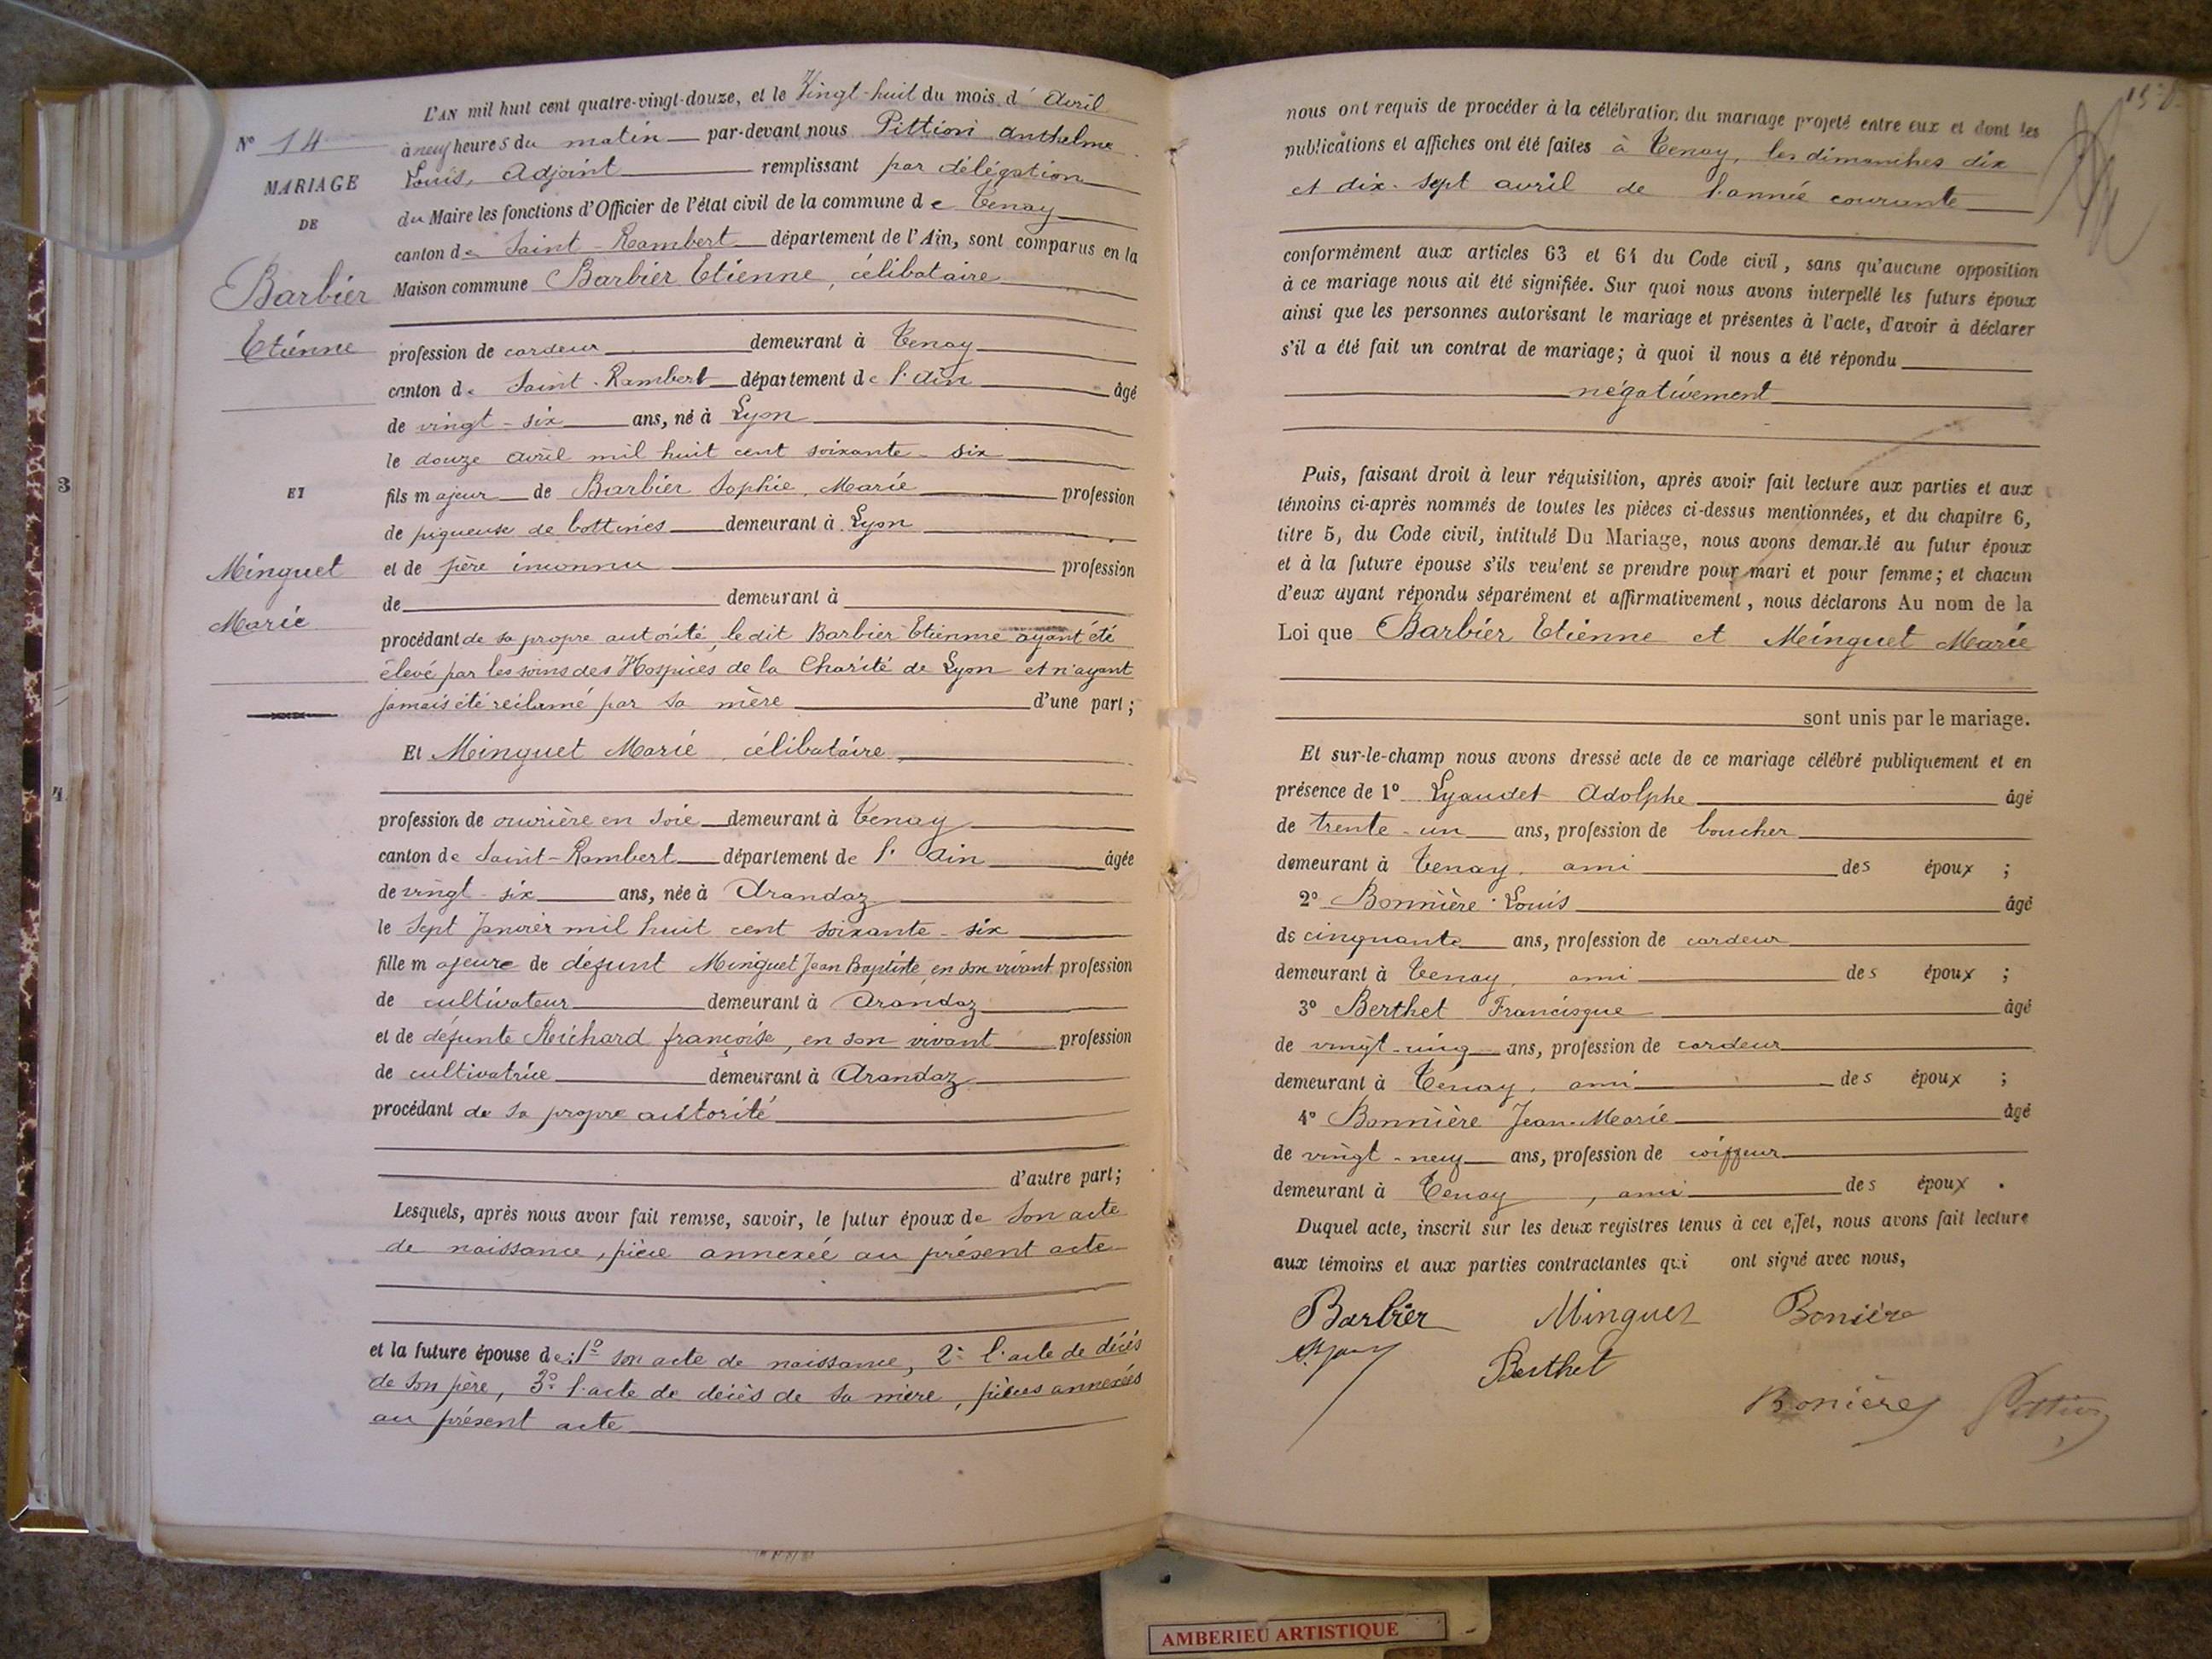 L'AN mil huit cent quatre-vingt-douze, et le Vingt-huit du mois d'Avril
N° 14
à neuf heures du matin par-devant nous Pittion Anthelme
MARIAGE
Louis, Adjoint remplissant par délégation
DE
du Maire les fonctions d'Officier de l'état civil de la commune de Tenay
canton de Saint-Rambert département de l'Ain, sont comparus en la
Barbier
Maison commune Barbier Etienne, célibataire
Etienne
profession de cardeur demeurant à Tenay
canton de Saint-Rambert département de l'Ain âgé
de vingt-six ans, né à Lyon
le douze avril mil huit cent soixante-six
3
ET
fils majeur de Barbier Sophie, Marie profession
de piqueuse de bottines demeurant à Lyon
Minguet
et de père inconnu profession
de demeurant à
Marie
procédant de sa propre autorité, le dit Barbier Etienne ayant été
élevé par les soins des Hospices de la Charité de Lyon et n'ayant
jamais été réclamé par sa mère d'une part;
Et Minguet Marie, célibataire
4
profession de ouvrière en soie demeurant à Tenay
canton de Saint-Rambert département de l'Ain âgée
de vingt-six ans, née à Arandaz
le Sept Janvier mil huit cent soixante-six
fille majeure de défunt Minguet Jean Baptiste, en son vivant profession
de cultivateur demeurant à Arandaz
et de défunte Richard françoise, en son vivant profession
de cultivatrice demeurant à Arandaz
procédant de sa propre autorité
d'autre part;
Lesquels, après nous avoir fait remise, savoir, le futur époux de Son acte
de naissance, pièce annexée au présent acte
et la future épouse de: 1° son acte de naissance, 2° l'acte de décès
de son père, 3° l'acte de décès de sa mère, pièces annexées
au présent acte
nous ont requis de procéder à la célébration du mariage projeté entre eux et dont les
publications et affiches ont été faites à Tenay, les dimanches dix
et dix-sept avril de l'année courante
conformément aux articles 63 et 64 du Code civil, sans qu'aucune opposition
à ce mariage nous ait été signifiée. Sur quoi nous avons interpellé les futurs époux
ainsi que les personnes autorisant le mariage et présentes à l'acte, d'avoir à déclarer
s'il a été fait un contrat de mariage; à quoi il nous a été répondu
négativement
Puis, faisant droit à leur réquisition, après avoir fait lecture aux parties et aux
témoins ci-après nommés de toutes les pièces ci-dessus mentionnées, et du chapitre 6,
titre 5, du Code civil, intitulé Du Mariage, nous avons demandé au futur époux
et à la future épouse s'ils veulent se prendre pour mari et pour femme; et chacun
d'eux ayant répondu séparément et affirmativement, nous déclarons Au nom de la
Loi que Barbier Etienne et Minguet Marie
sont unis par le mariage.
Et sur-le-champ nous avons dressé acte de ce mariage célébré publiquement et en
présence de 1° Lyaudet Adolphe âgé
de trente-un ans, profession de boucher
demeurant à Tenay, ami des époux ;
2° Bonnière Louis âgé
de cinquante ans, profession de cardeur
demeurant à Tenay, ami des époux ;
3° Berthet Francisque âgé
de vingt-cinq ans, profession de cardeur
demeurant à Tenay, ami des époux ;
4° Bonnière Jean-Marie âgé
de vingt-neuf ans, profession de coiffeur
demeurant à Tenay, ami des époux .
Duquel acte, inscrit sur les deux registres tenus à cet effet, nous avons fait lecture
aux témoins et aux parties contractantes qui ont signé avec nous,
Barbier Minguet Bonière
Berthet
Bonière Pittion
AMBERIEU ARTISTIQUE